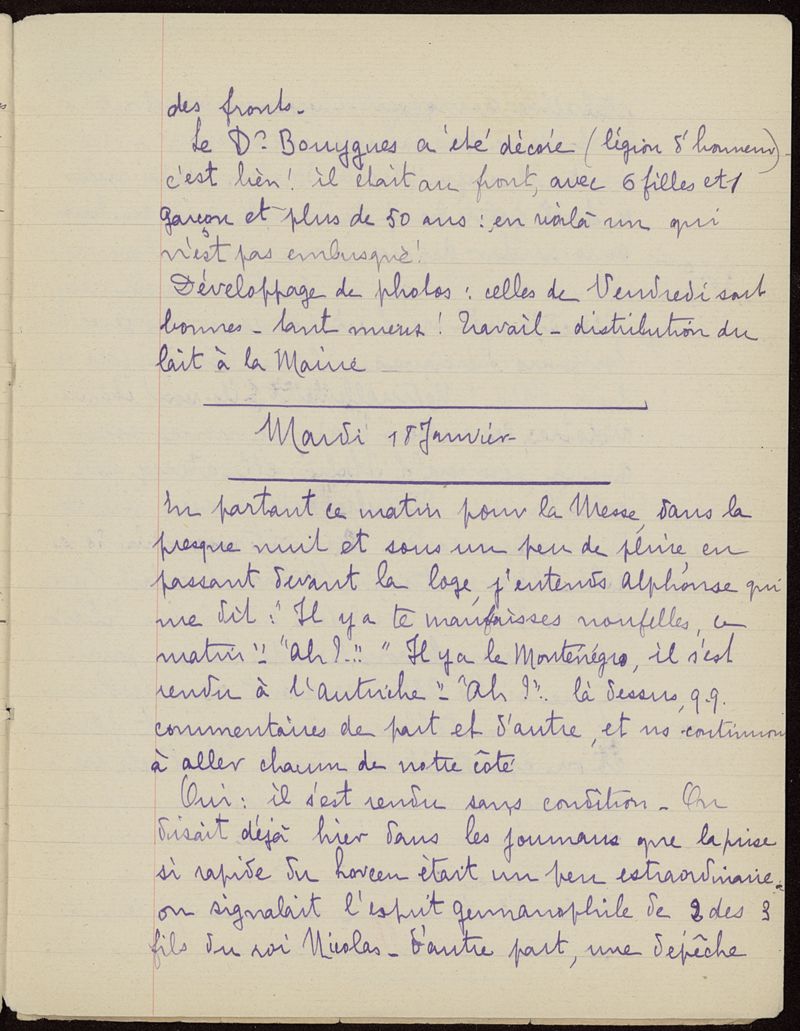 des fronts.
Le Dr Bouygues a été décoré (légion d'honneur) -
c'est bien ! il était au front, avec 6 filles et 1
garçon et plus de 50 ans : en voilà un qui
n'est pas embusqué !
Développage de photos : celles de Vendredi sont
bonnes - tant mieux ! Travail - distribution du
lait à la Mairie
Mardi 18 Janvier -
En partant ce matin pour la Messe, dans la
presque nuit et sous un peu de pluie, en
passant devant la loge, j'entends Alphonse qui
me dit : "Il y a te maufaisses noufelles, ce
matin !! "Ah ?..!! " Il y a le Monténégro, il s'est
rendu à l'Autriche" - "Ah ?".. là dessus, q.q.
commentaires de part et d'autre, et ns continuons
à aller chacun de notre côté
Oui : il s'est rendu sans condition - On
disait déjà hier dans les journaux que la prise
si rapide du Lovcen était un peu estraordinaire -
on signalait l'esprit germanophile de 2 des 3
fils du roi Nicolas - d'autre part, une dépêche